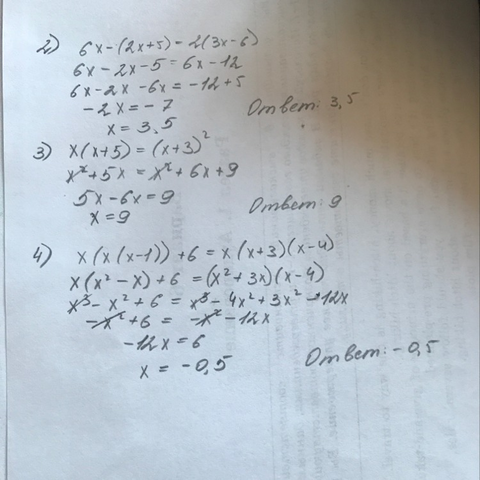 2) 6x-(2x+5)=2(3x-6)
6x-2x-5=6x-12
6x-2x-6x=-12+5
-2x=-7
x=3,5
Ответ: 3,5
3) x(x+5)=(x+3)²
x²+5x=x²+6x+9
5x-6x=9
x=9
Ответ: 9
4) x(x(x-1))+6=x(x+3)(x-4)
x(x²-x)+6=(x²+3x)(x-4)
x³-x²+6=x³-4x²+3x²-12x
-x²+6=-x²-12x
-12x=6
x=-0,5
Ответ: -0,5